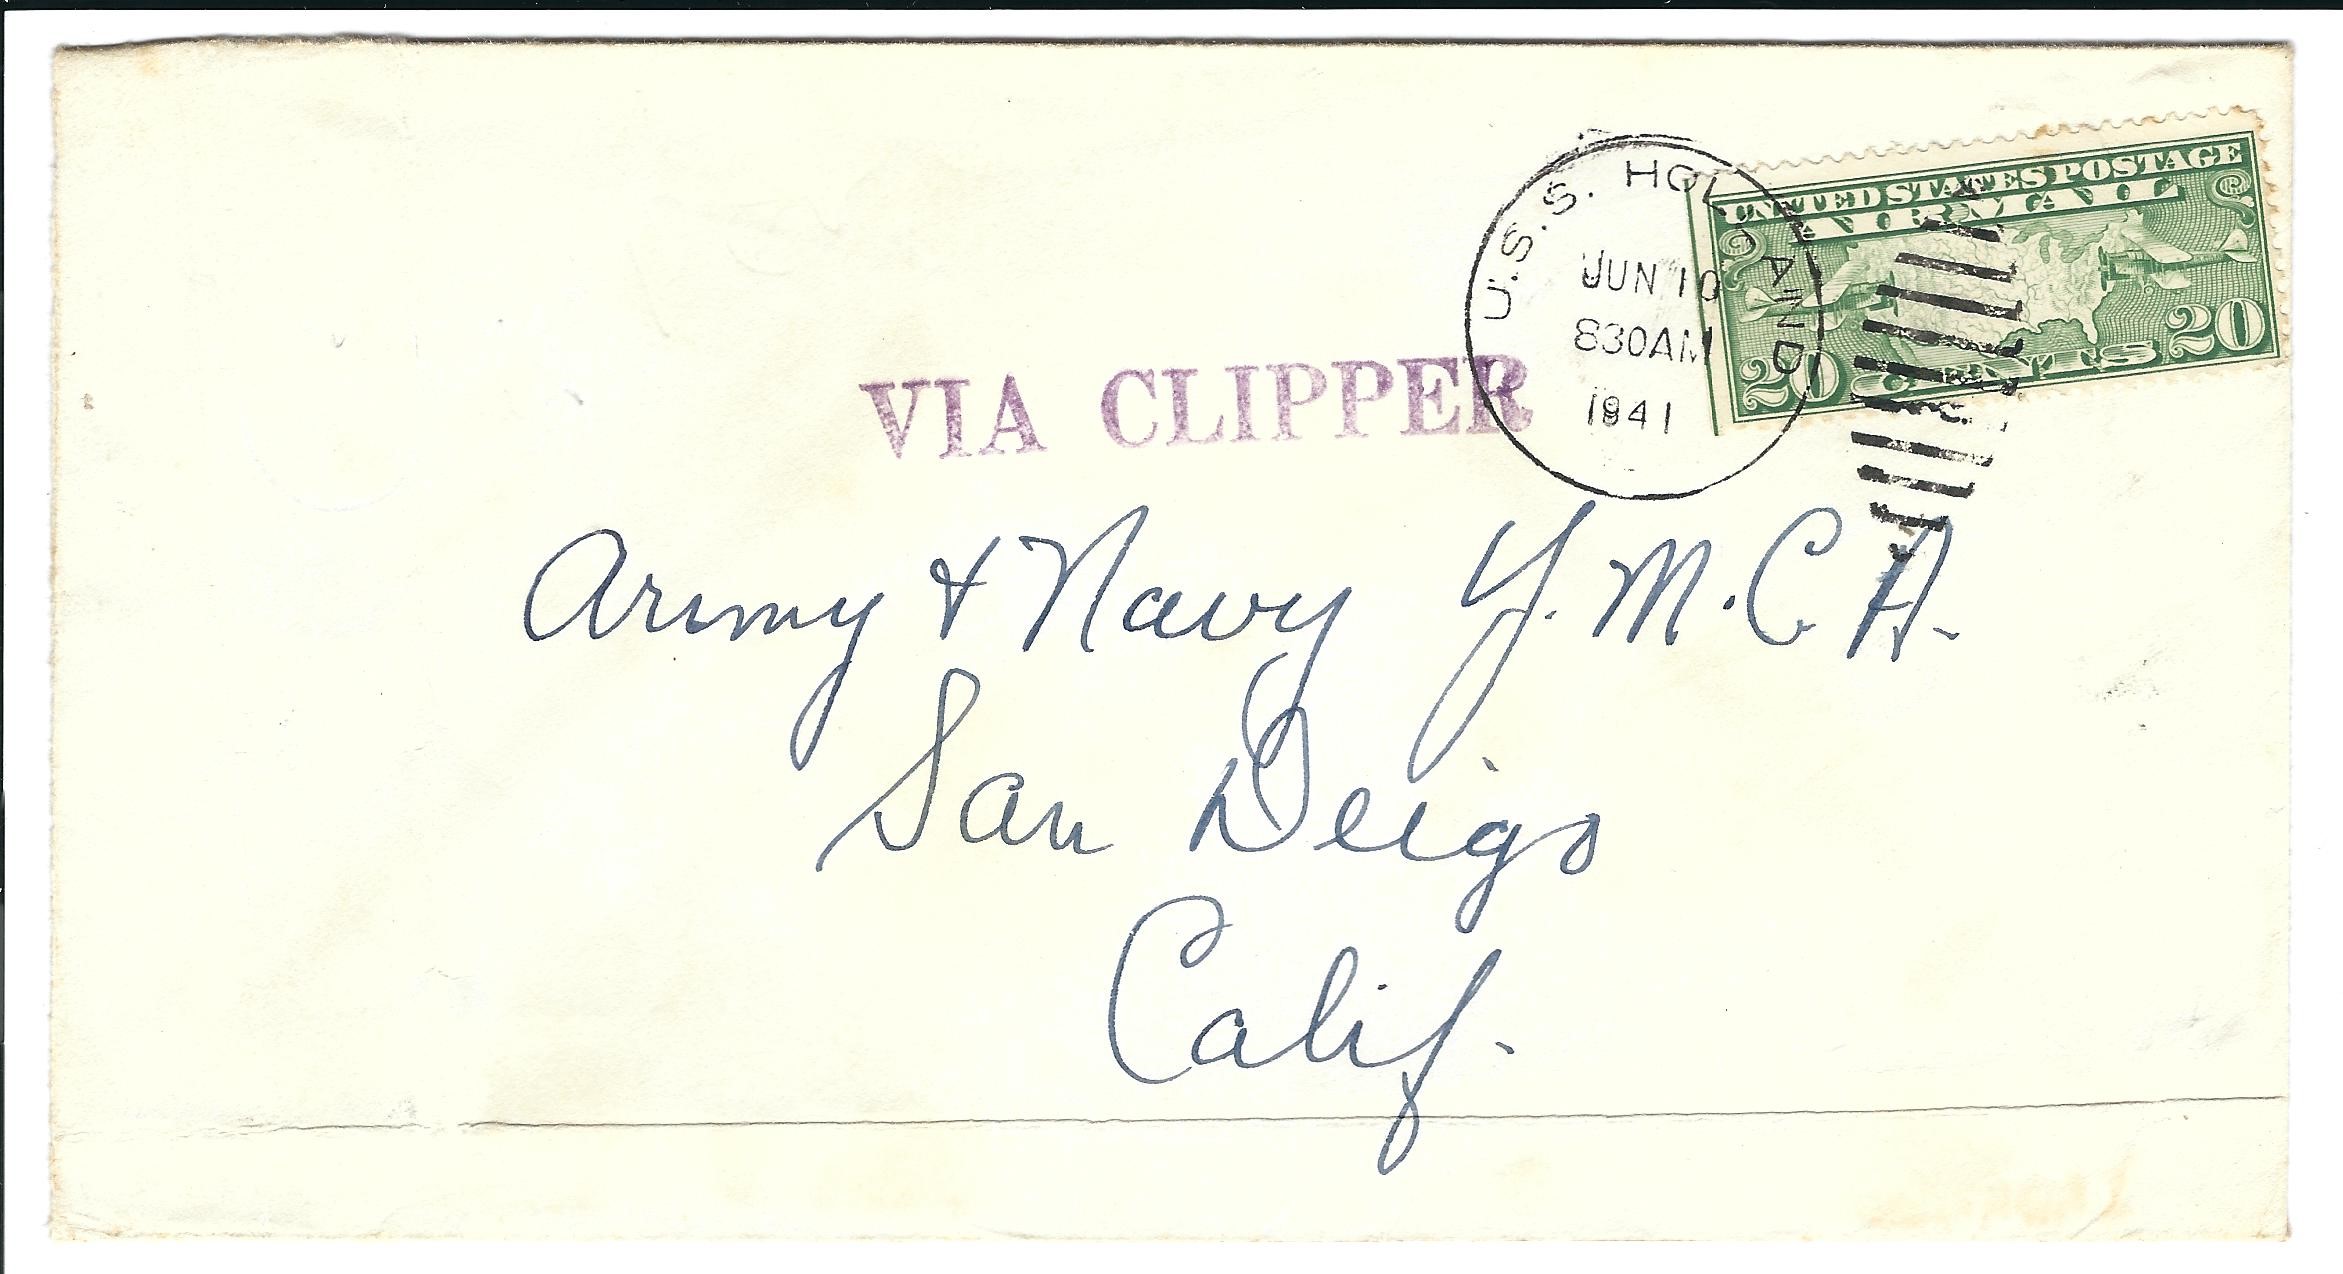 U.S.S. HOLLAND
JUN 10
830AM
1941
UNITED STATES POSTAGE
AIR MAIL
20 CENTS 20
VIA CLIPPER
Army & Navy Y.M.C.A.
San Deigo
Calif.